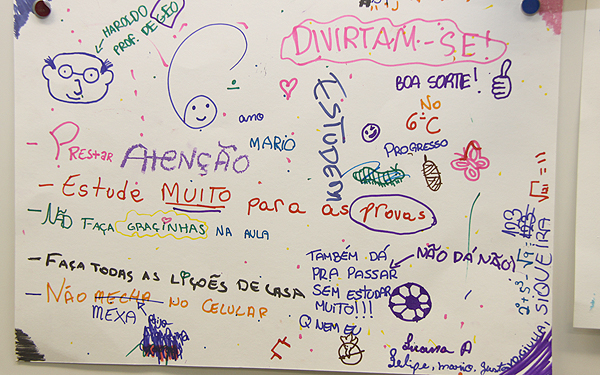 HAROLDO
PROF. DE GEO
DIVIRTAM-SE!
BOA SORTE!
No
6ºC
PROGRESSO
ESTUDEM
ano
MARIO
- Prestar ATENÇÃO
- Estude MUITO para as provas
- NÃO FAÇA GRAÇINHAS NA AULA
- FAÇA TODAS AS LIÇÕES DE CASA
- NÃO MECHA NO CELULAR
MEXA
TAMBÉM DÁ
PRA PASSAR
SEM ESTUDAR
MUITO!!!
Q NEM EU
NÃO DÁ NÃO!
Luana A
Felipe, mario, Gustavo
SIQUEIRA